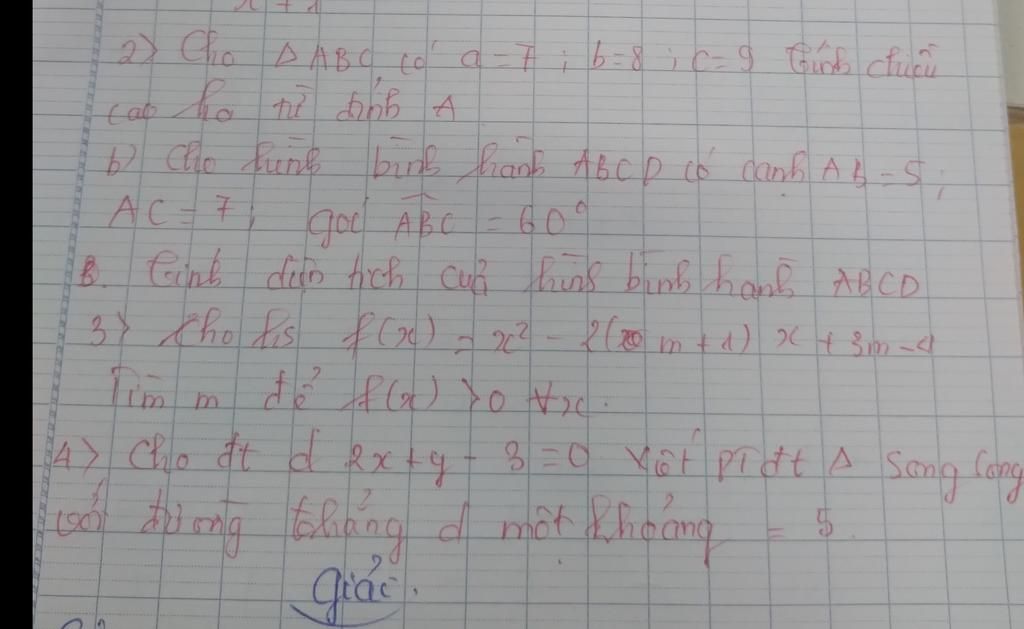 x + 1
2) Cho Δ ABC có a = 7 ; b = 8 ; c = 9 tính chiều
cao ha từ đỉnh A
b) Cho hình bình hành ABCD có cạnh AB = 5 ;
AC = 7 ; góc ABC = 60°
B. Tính diện tích của hình bình hành ABCD
3) Cho hs f(x) = x² - 2(m + 1) x + 3m - 1
Tìm m để f(x) > 0 ∀x.
4) Cho đt d 2x + y - 3 = 0 Viết PTđt Δ song song
với đường thẳng d một khoảng = 5.
Giải.